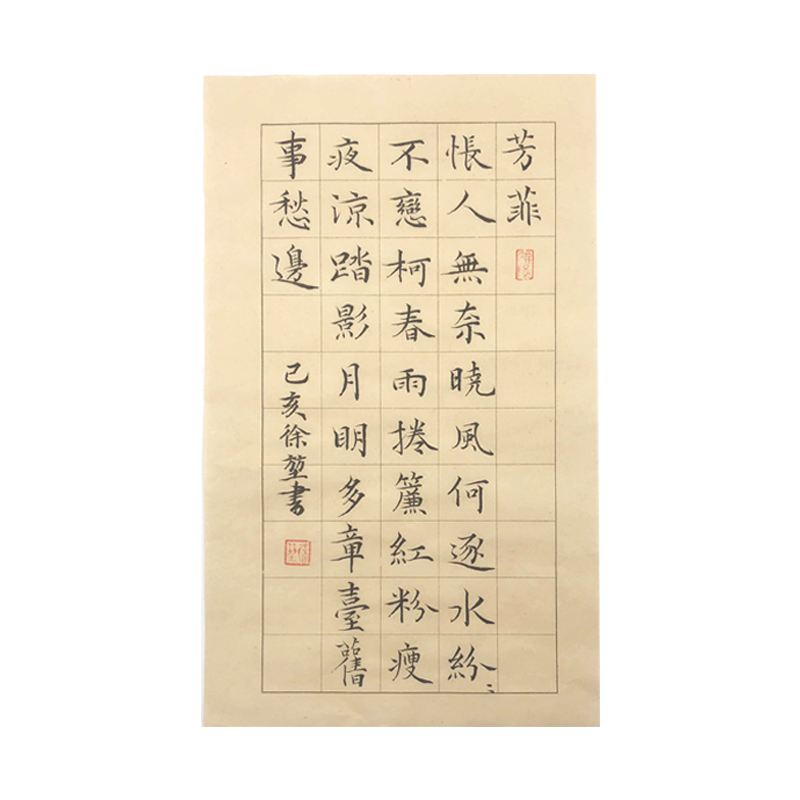 芳菲
悵人無奈曉風何逐水紛〻
不戀柯春雨捲簾紅粉瘦
夜涼踏影月明多章臺舊
事愁邊
己亥徐堃書